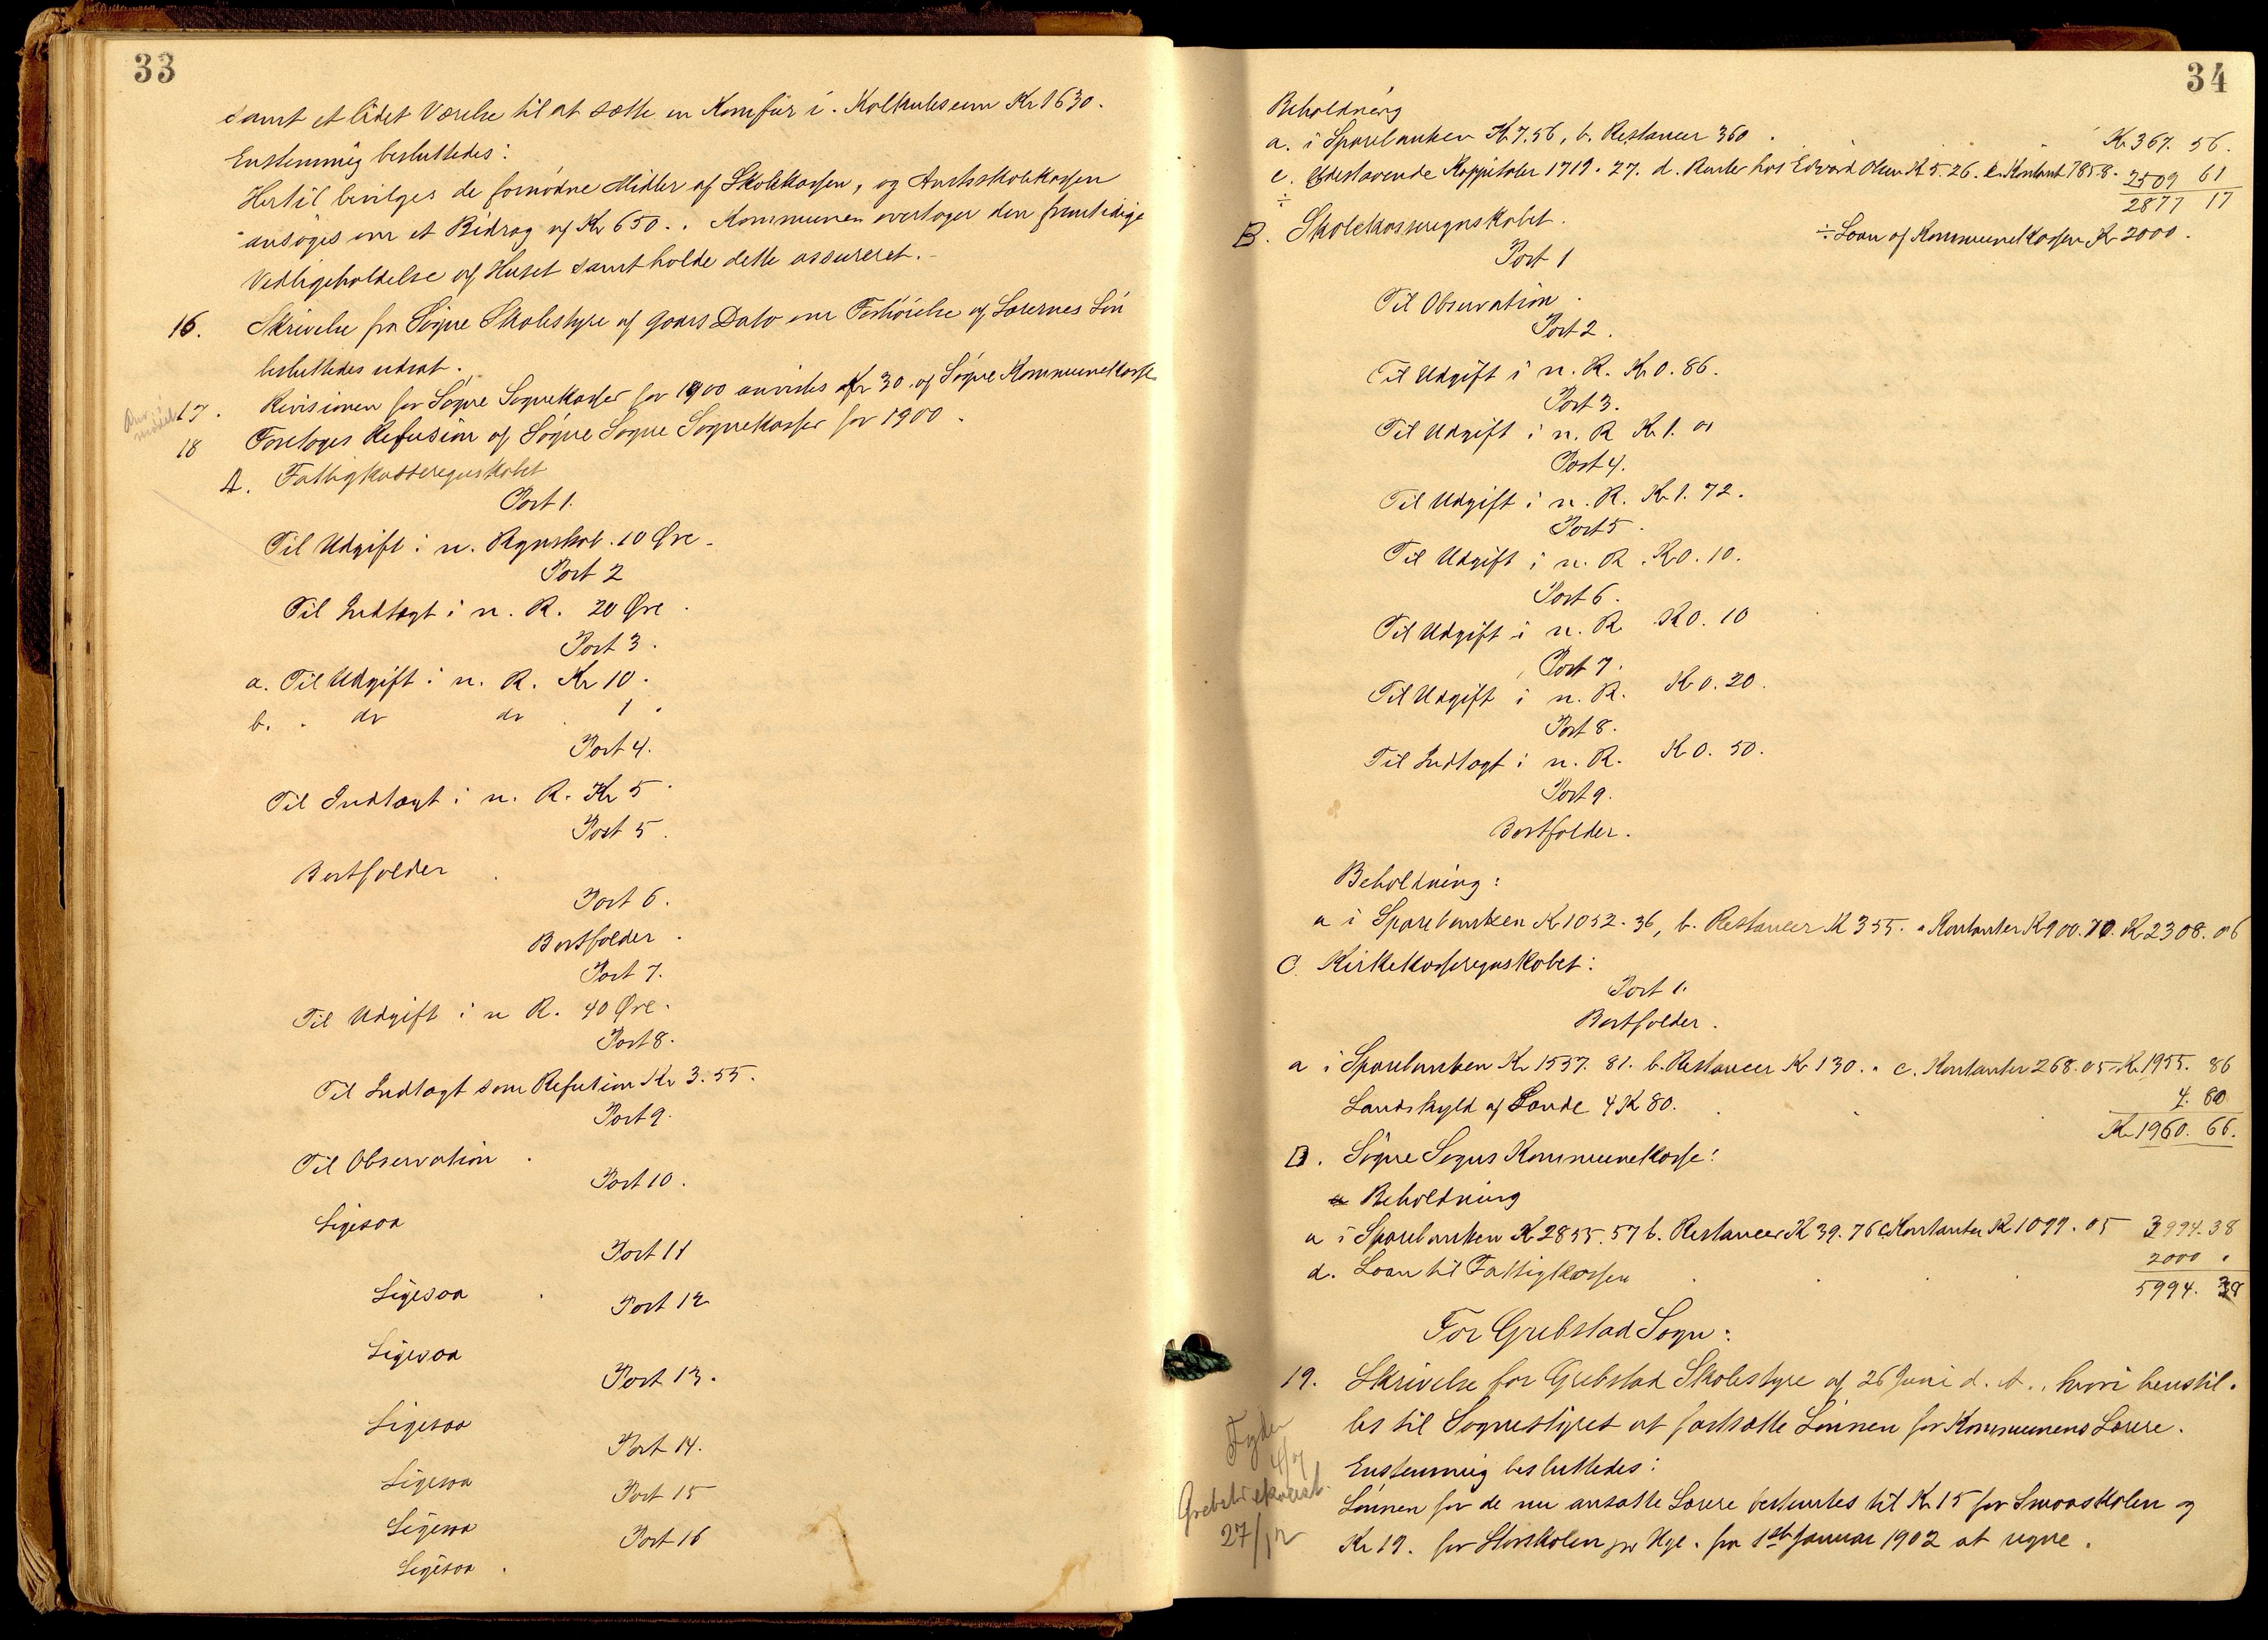 33
samt et lidet Værelse til at sætte en Komfur i. Kr 1630.
Enstemmig besluttedes:
Hertil bevilges de fornødne Midler af Skolekassen, og Amtsskolekassen
ansøges om et Bidrag af Kr 650.. Kommunen overtager den fremtidige
Vedligeholdelse af Huset samt holde dette assureret.-
16. Skrivelse fra Søgne Skolestyre af gaars Dato om Forhøielse af Lærernes Løn
besluttedes udsat.
17. Revisionen for Søgne Sognekasser for 1900 anvistes Kr 30. af Søgne Kommunekasse
18 Foretoges Refusion af Søgne Sogne Sognekasser for 1900.
A. Fattigkasseregnskabet
Post 1.
Til Udgift i n. Regnskab. 10 Øre.
Post 2
Til Indtægt i n. R. 20 Øre.
Post 3.
a. Til Udgift i n. R. Kr 10.
b. . do do . 1.
Post 4.
Til Indtægt i n. R. Kr 5.
Post 5.
Bortfalder.
Post 6.
Bortfalder.
Post 7.
Til Udgift i n R. 40 Øre.
Post 8.
Til Indtægt som Refusion Kr 3.55.
Post 9.
Til Observation.
Post 10.
Ligesaa
Post 11
Ligesaa.
Post 12
Ligesaa
Post 13.
Ligesaa
Post 14.
Ligesaa
Post 15
Ligesaa
Post 16
Ligesaa.
34
Beholdning
a. i Sparebanken Kr 7.56, b. Restancer 360. Kr 367. 56.
c. Udestaaende Kappitaler 1719.27. d. Renter hos Edvard Olsen Kr 5.26. e. Kontant 785.8. 2509 61
2877 17
÷ Laan af Kommunekassen Kr 2000.
B. Skolekasseregnskabet.
Post 1
Til Observation.
Post 2.
Til Udgift i n. R. Kr 0.86.
Post 3.
Til Udgift i n. R Kr 1. 01
Post 4.
Til Udgift i n. R. Kr 1.72.
Post 5.
Til Udgift i n. R. Kr 0.10.
Post 6.
Til Udgift i n. R Kr 0.10
Post 7.
Til Udgift i n. R. Kr 0.20.
Post 8.
Til Indtægt i n. R. Kr 0.50.
Post 9.
Bortfalder.
Beholdning:
a i Sparebanken Kr 1052.36, b. Restancer Kr 355. Kontanter Kr 900.70. Kr 2308.06
C. Kirkekasseregnskabet:
Post 1.
Bortfalder.
a i Sparebanken Kr 1557.81. b. Restancer Kr 130.. c. Kontanter 268.05 Kr 1955. 86
Landskyld af Lande 4 Kr 80. 4. 80
Kr 1960. 66.
D. Søgne Sogns Kommunekasse:
Beholdning
a i Sparebanken Kr 2855.57 b. Restancer Kr 39.76 c. Kontanter Kr 1099.05 3994.38
d. Laan til Fattigkassen 2000.
5994. 38
For Grebstad Sogn:
19. Skrivelse for Grebstad Skolestyre af 26 Juni d. A., hvori henstil.
les til Sognestyret at fastsætte Lønnen for Kommunens Lærere.
Enstemmig besluttedes:
Lønnen for de nu ansatte Lærere bestemtes til Kr 15 for Smaaskolen og
Kr 19. for Storskolen pr Uge. fra 1ste Januar 1902 at regne.
27/12